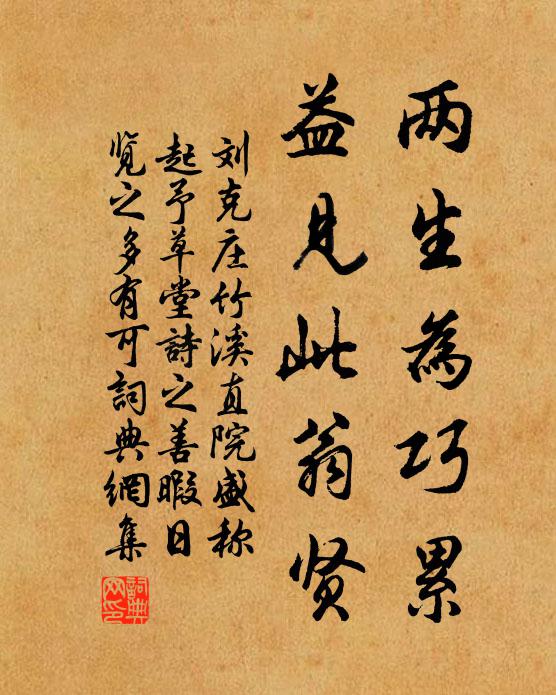 两生為巧累
益见此翁贤
刘克庄竹溪直院盛称
起予草堂詩之善暇日
览之多有可詞典網集
詞典
网印